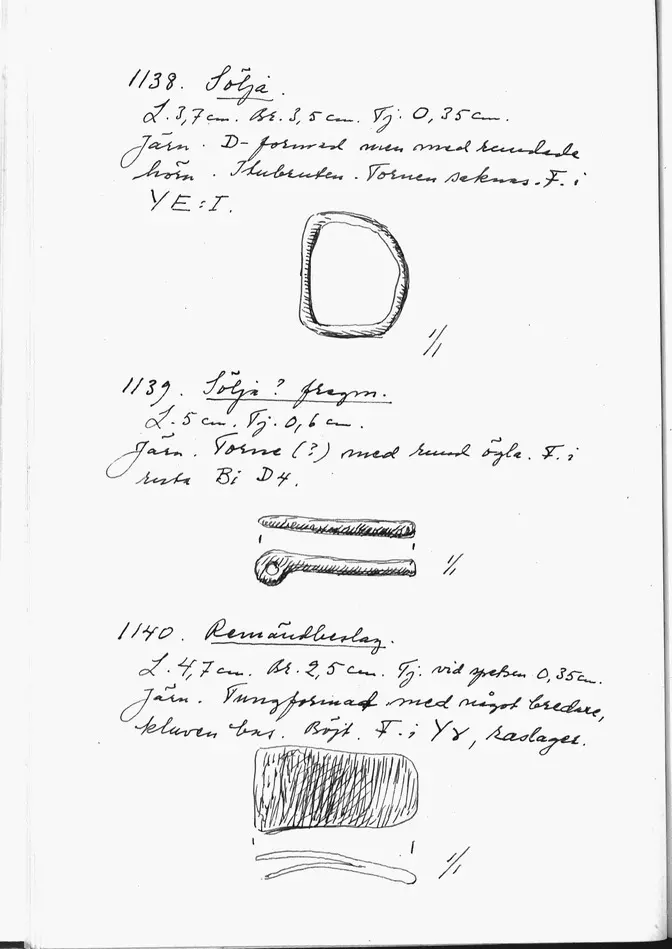 1138. Sölja.
L. 3,7 cm. Br. 3,5 cm. Tj. 0,35 cm.
Järn. D-formad men med rundade
hörn. Itubruten. Tornen saknas. F. i
YE:I.
1/1
1139. Sölja? fragm.
L. 5 cm. Tj. 0,6 cm.
Järn. Torne (?) med rund ögla. F. i
ruta Bi D4.
1/1
1140. Remändbeslag.
L. 4,7 cm. Br. 2,5 cm. Tj. vid spetsen 0,35 cm.
Järn. Tungformad med något bredare,
kluven bas. Böjt. F. i Yγ, raslager.
1/1